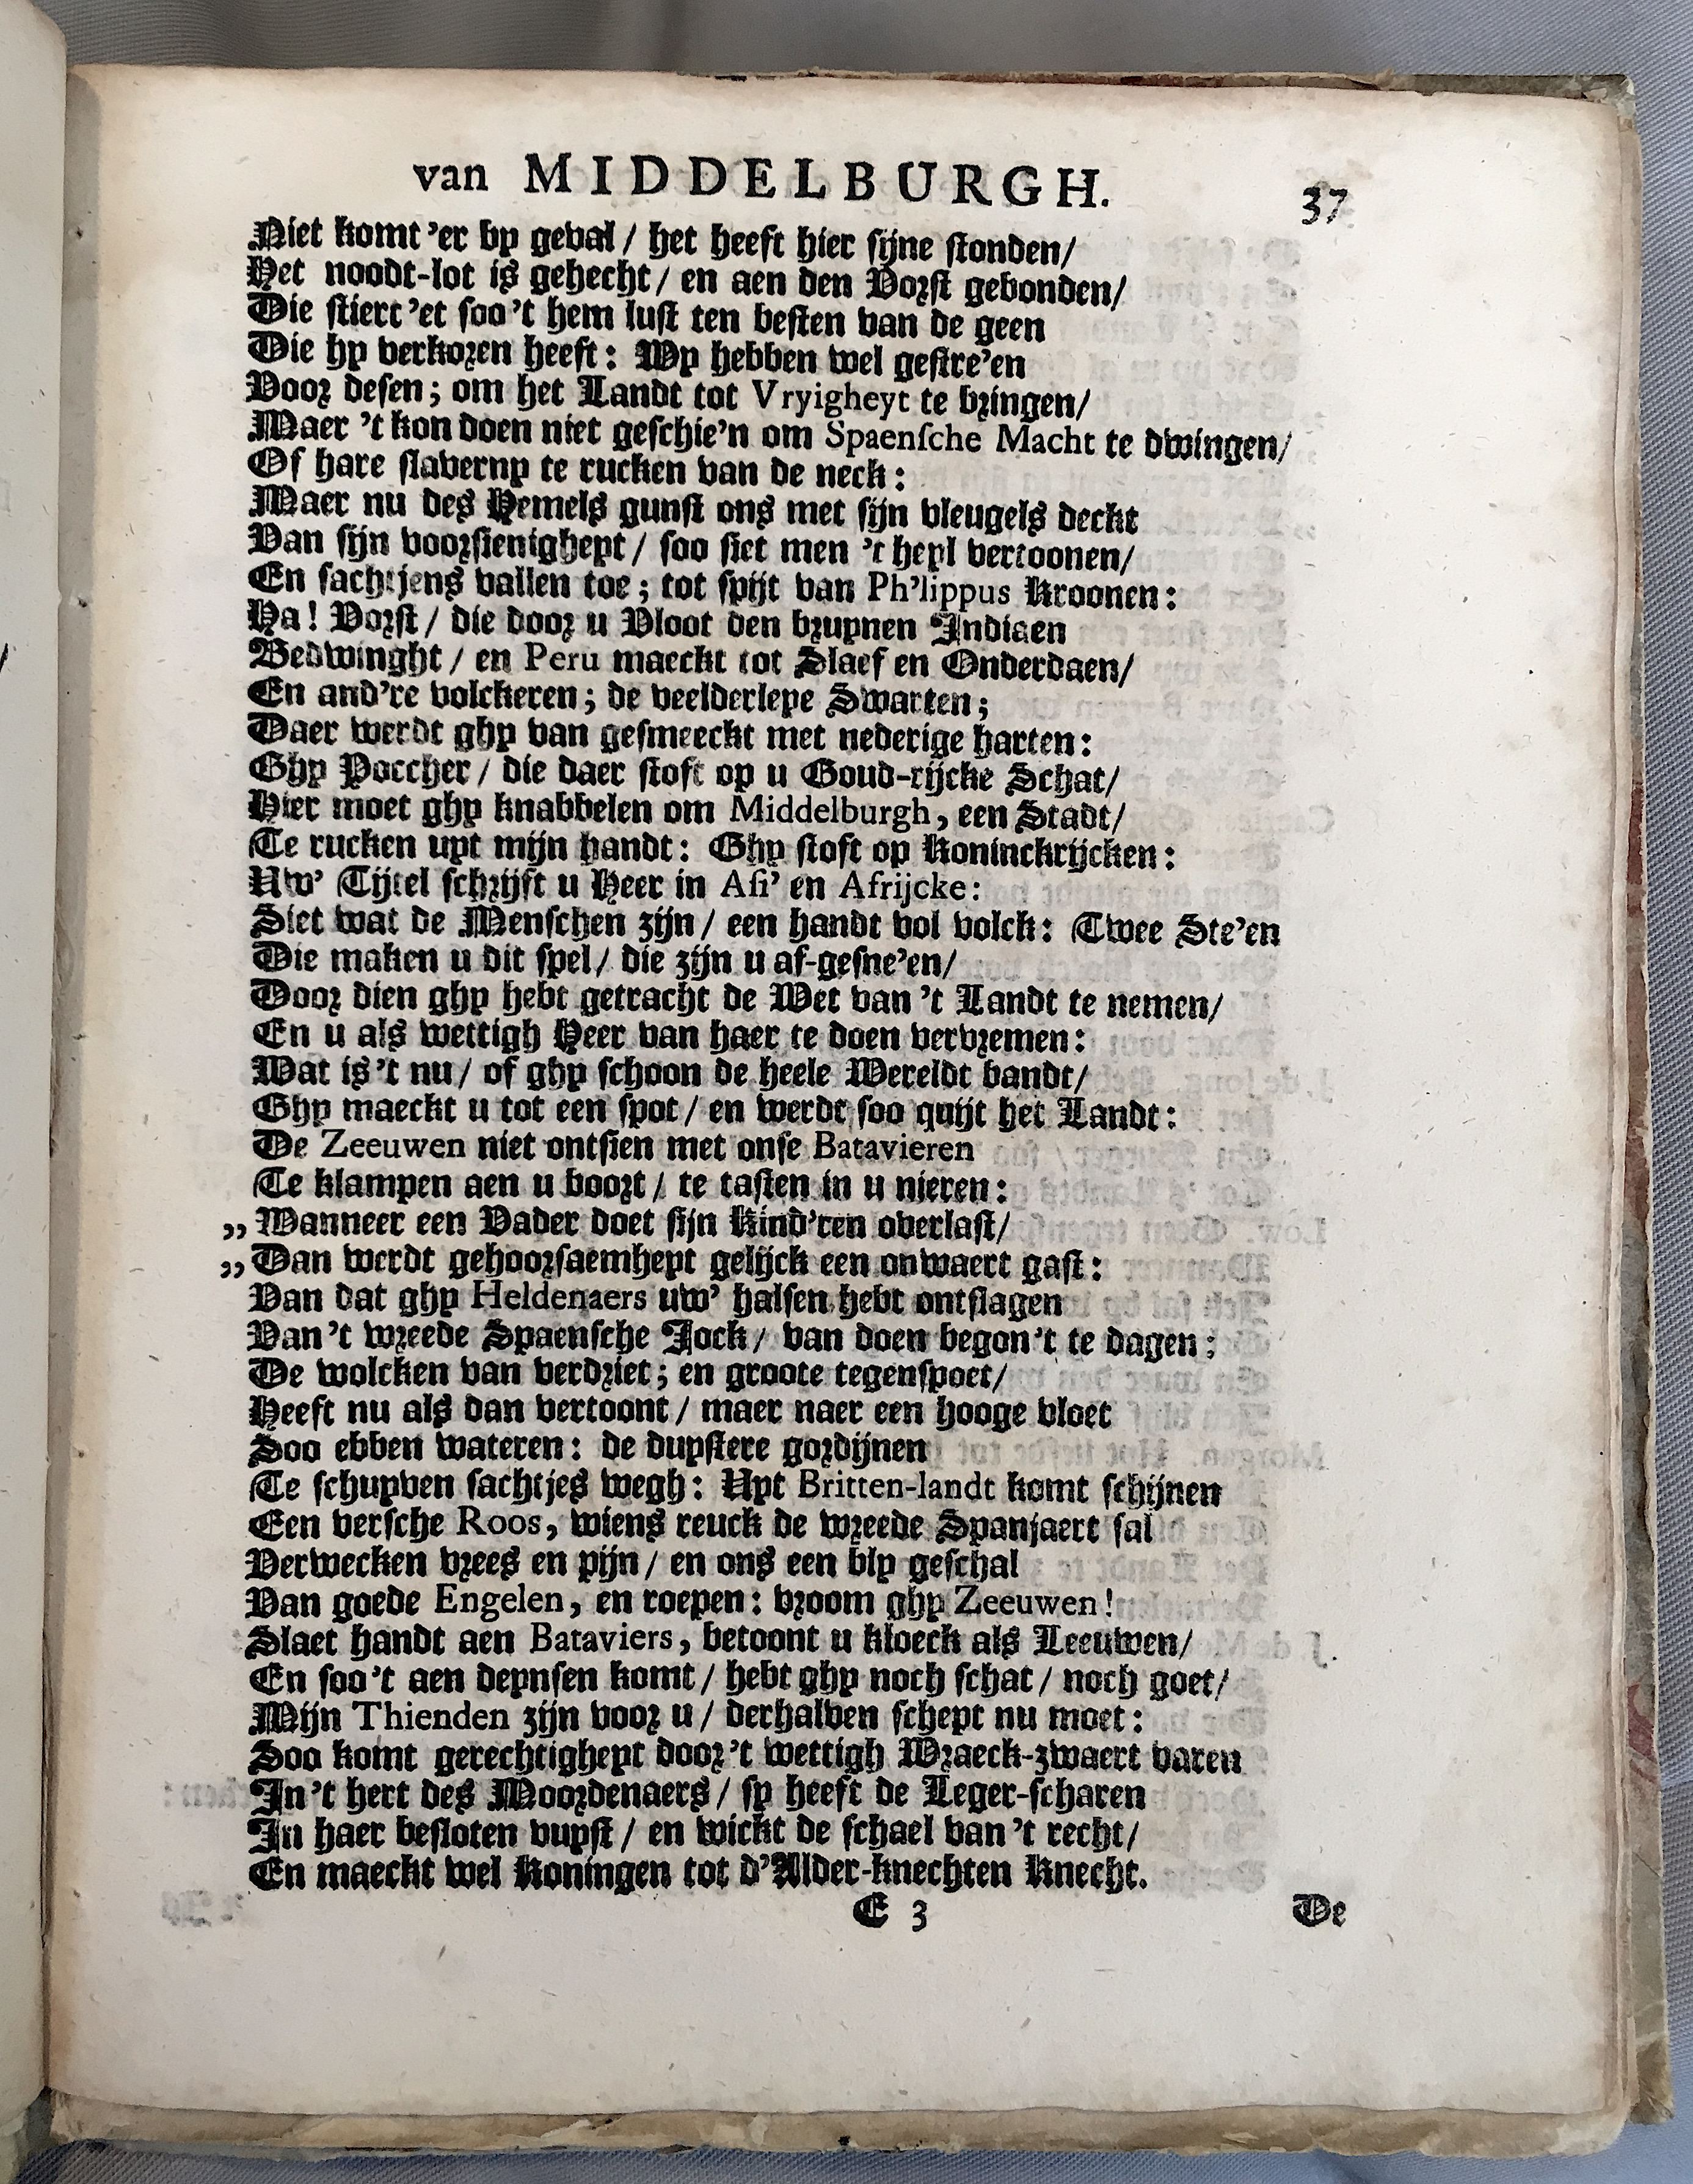 van MIDDELBURGH. 37
Niet komt 'er by geval / het heeft hier sijne stonden /
Het noodt-lot is gehecht / en aen den Vorst gebonden /
Die stiert 'et soo 't hem lust ten besten van de geen
Die hy verkozen heeft: Wy hebben wel gestre'en
Voor desen; om het Landt tot Vryigheyt te bringen /
Maer 't kon doen niet geschie'n om Spaensche Macht te dwingen /
Of hare slaverny te rucken van de neck:
Maer nu des Hemels gunst ons met sijn vleugels deckt
Van sijn voorsienigheyt / soo siet men 't heyl vertoonen /
En sachtjens vallen toe; tot spijt van Ph'lippus Kroonen:
Ha! Vorst / die door u Vloot den bruynen Indiaen
Bedwinght / en Peru maeckt tot Slaef en Onderdaen /
En and're volckeren; de veelderleye Swarten;
Daer werdt ghy van gesmeeckt met nederige harten:
Ghy Poccher / die daer stoft op u Goud-rijcke Schat /
Hier moet ghy knabbelen om Middelburgh, een Stadt /
Te rucken uyt mijn handt: Ghy stoft op Koninckrijcken:
Uw' Tijtel schrijft u Heer in Asi' en Afrijcke:
Siet wat de Menschen zijn / een handt vol volck: Twee Ste'en
Die maken u dit spel / die zijn u af-gesne'en /
Door dien ghy hebt getracht de Wet van 't Landt te nemen /
En u als wettigh Heer van haer te doen vervremen:
Wat is 't nu / of ghy schoon de heele Wereldt bandt /
Ghy maeckt u tot een spot / en werdt soo quijt het Landt:
De Zeeuwen niet ontsien met onse Batavieren
Te klampen aen u boort / te tasten in u nieren:
,, Wanneer een Vader doet sijn Kind'ren overlast /
,, Dan werdt gehoorsaemheyt gelijck een onwaert gast:
Van dat ghy Heldenaers uw' halsen hebt ontslagen
Van 't wreede Spaensche Jock / van doen begon 't te dagen:
De wolcken van verdriet; en groote tegenspoet /
Heeft nu als dan vertoont / maer naer een hooge vloet
Soo ebben wateren: de duystere gordijnen
Te schuyven sachtjes wegh: Uyt Britten-landt komt schijnen
Een versche Roos, wiens reuck de wreede Spanjaert sal
Verwecken vrees en pijn / en ons een bly geschal
Van goede Engelen, en roepen: vroom ghy Zeeuwen!
Slaet handt aen Bataviers, betoont u kloeck als Leeuwen /
En soo 't aen deynsen komt / hebt ghy noch schat / noch goet /
Mijn Thienden zijn voor u / derhalven schept nu moet:
Soo komt gerechtigheyt door 't wettigh Wraeck-zwaert varen
In 't hert des Moordenaers / sy heeft de Leger-scharen
In haer besloten vuyst / en wickt de schael van 't recht /
En maeckt wel Koningen tot d'Alder-knechten Knecht.
E 3 De